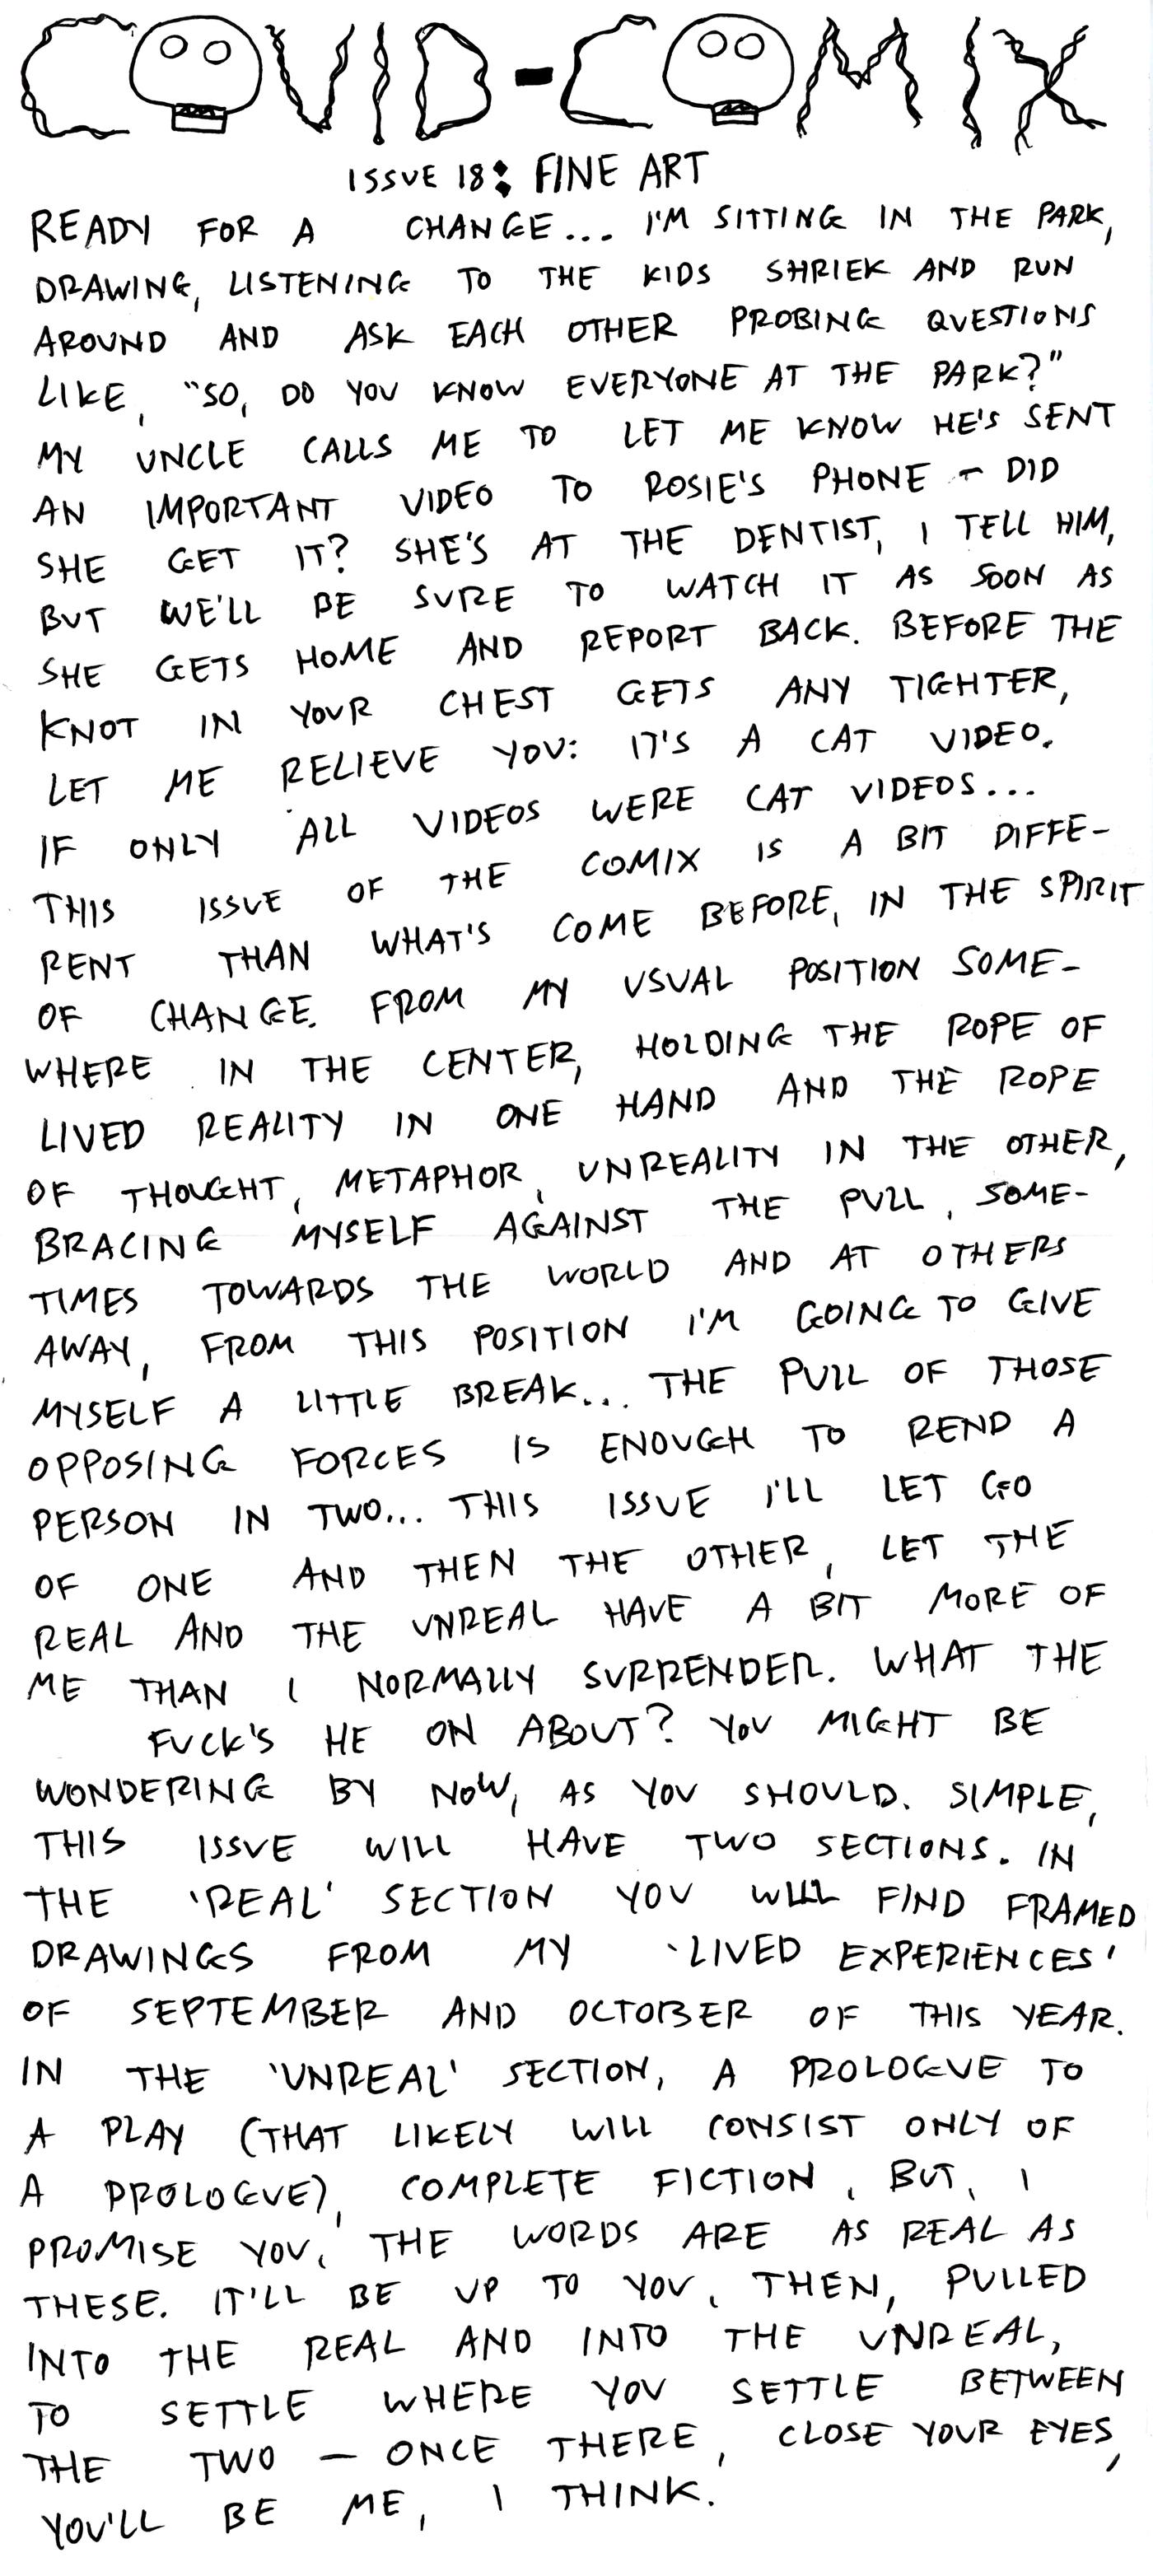 COVID-COMIX
ISSUE 18: FINE ART
READY FOR A CHANGE... I'M SITTING IN THE PARK,
DRAWING, LISTENING TO THE KIDS SHRIEK AND RUN
AROUND AND ASK EACH OTHER PROBING QUESTIONS
LIKE, "SO, DO YOU KNOW EVERYONE AT THE PARK?"
MY UNCLE CALLS ME TO LET ME KNOW HE'S SENT
AN IMPORTANT VIDEO TO ROSIE'S PHONE - DID
SHE GET IT? SHE'S AT THE DENTIST, I TELL HIM,
BUT WE'LL BE SURE TO WATCH IT AS SOON AS
SHE GETS HOME AND REPORT BACK. BEFORE THE
KNOT IN YOUR CHEST GETS ANY TIGHTER,
LET ME RELIEVE YOU: IT'S A CAT VIDEO.
IF ONLY ALL VIDEOS WERE CAT VIDEOS...
THIS ISSUE OF THE COMIX IS A BIT DIFFE-
RENT THAN WHAT'S COME BEFORE, IN THE SPIRIT
OF CHANGE. FROM MY USUAL POSITION SOME-
WHERE IN THE CENTER, HOLDING THE ROPE OF
LIVED REALITY IN ONE HAND AND THE ROPE
OF THOUGHT, METAPHOR, UNREALITY IN THE OTHER,
BRACING MYSELF AGAINST THE PULL, SOME-
TIMES TOWARDS THE WORLD AND AT OTHERS
AWAY, FROM THIS POSITION I'M GOING TO GIVE
MYSELF A LITTLE BREAK... THE PULL OF THOSE
OPPOSING FORCES IS ENOUGH TO REND A
PERSON IN TWO... THIS ISSUE I'LL LET GO
OF ONE AND THEN THE OTHER, LET THE
REAL AND THE UNREAL HAVE A BIT MORE OF
ME THAN I NORMALLY SURRENDER. WHAT THE
FUCK'S HE ON ABOUT? YOU MIGHT BE
WONDERING BY NOW, AS YOU SHOULD. SIMPLE,
THIS ISSUE WILL HAVE TWO SECTIONS. IN
THE 'REAL' SECTION YOU WILL FIND FRAMED
DRAWINGS FROM MY 'LIVED EXPERIENCES'
OF SEPTEMBER AND OCTOBER OF THIS YEAR.
IN THE 'UNREAL' SECTION, A PROLOGUE TO
A PLAY (THAT LIKELY WILL CONSIST ONLY OF
A PROLOGUE), COMPLETE FICTION, BUT, I
PROMISE YOU, THE WORDS ARE AS REAL AS
THESE. IT'LL BE UP TO YOU, THEN, PULLED
INTO THE REAL AND INTO THE UNREAL,
TO SETTLE WHERE YOU SETTLE BETWEEN
THE TWO — ONCE THERE, CLOSE YOUR EYES,
YOU'LL BE ME, I THINK.